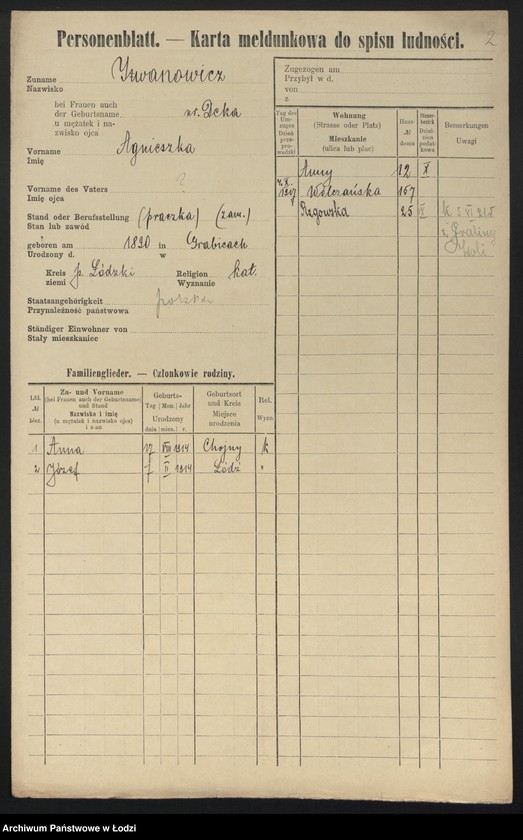 Personenblatt. — Karta meldunkowa do spisu ludności.
2
Zuname Iwanowicz
Nazwisko
bei Frauen auch
der Geburtsname
u mężatek i na-
zwisko ojca
Vorname Agnieszka
Imię
Vorname des Vaters ?
Imię ojca
Stand oder Berufsstellung (praczka) (zam.)
Stan lub zawód
geboren am 1890 in Grabicach
Urodzony d. w
Kreis p. Łódzki Religion kat.
ziemi Wyznanie
Staatsangehörigkeit polska
Przynależność państwowa
Ständiger Einwohner von
Stały mieszkaniec
Zugezogen am
Przybył w d.
von
z
Tag des Um-
zuges
Dzień
prze-
prowadzki
Wohnung
(Strasse oder Platz)
Mieszkanie
(ulica lub plac)
Haus-
№
domu
Bemerkungen
Uwagi
Anny 12 X
1917 Wólczańska 157
Rzgowska 25
Familienglieder. — Członkowie rodziny.
Lfd.
№
bież.
Zu- und Vorname
(bei Frauen auch der Geburtsname)
und Stand
Nazwisko i imię
(u mężatek i nazwisko ojca)
i stan
Geburts-
Tag Mon. Jahr
Urodzony
dnia mies. r.
Geburtsort
und Kreis
Miejsce
urodzenia
Rel.
Wyzn.
1 Anna 17 VIII 1914 Chojny k
2 Józef 7 II 1914 Łódź "
Archiwum Państwowe w Łodzi